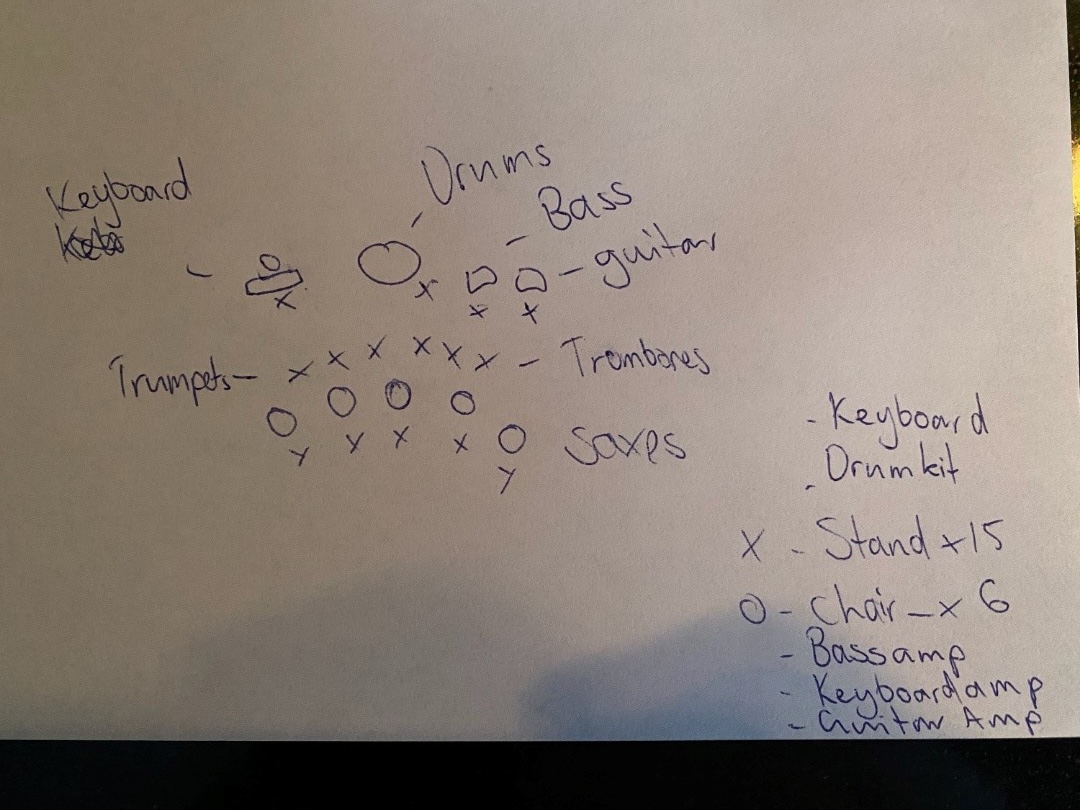 Keyboard
Drums
Bass
guitar
Trumpets
Trombones
Saxes
- Keyboard
- Drumkit
X - Stand x15
O - Chair - x 6
- Bass amp
- Keyboard amp
- Guitar Amp